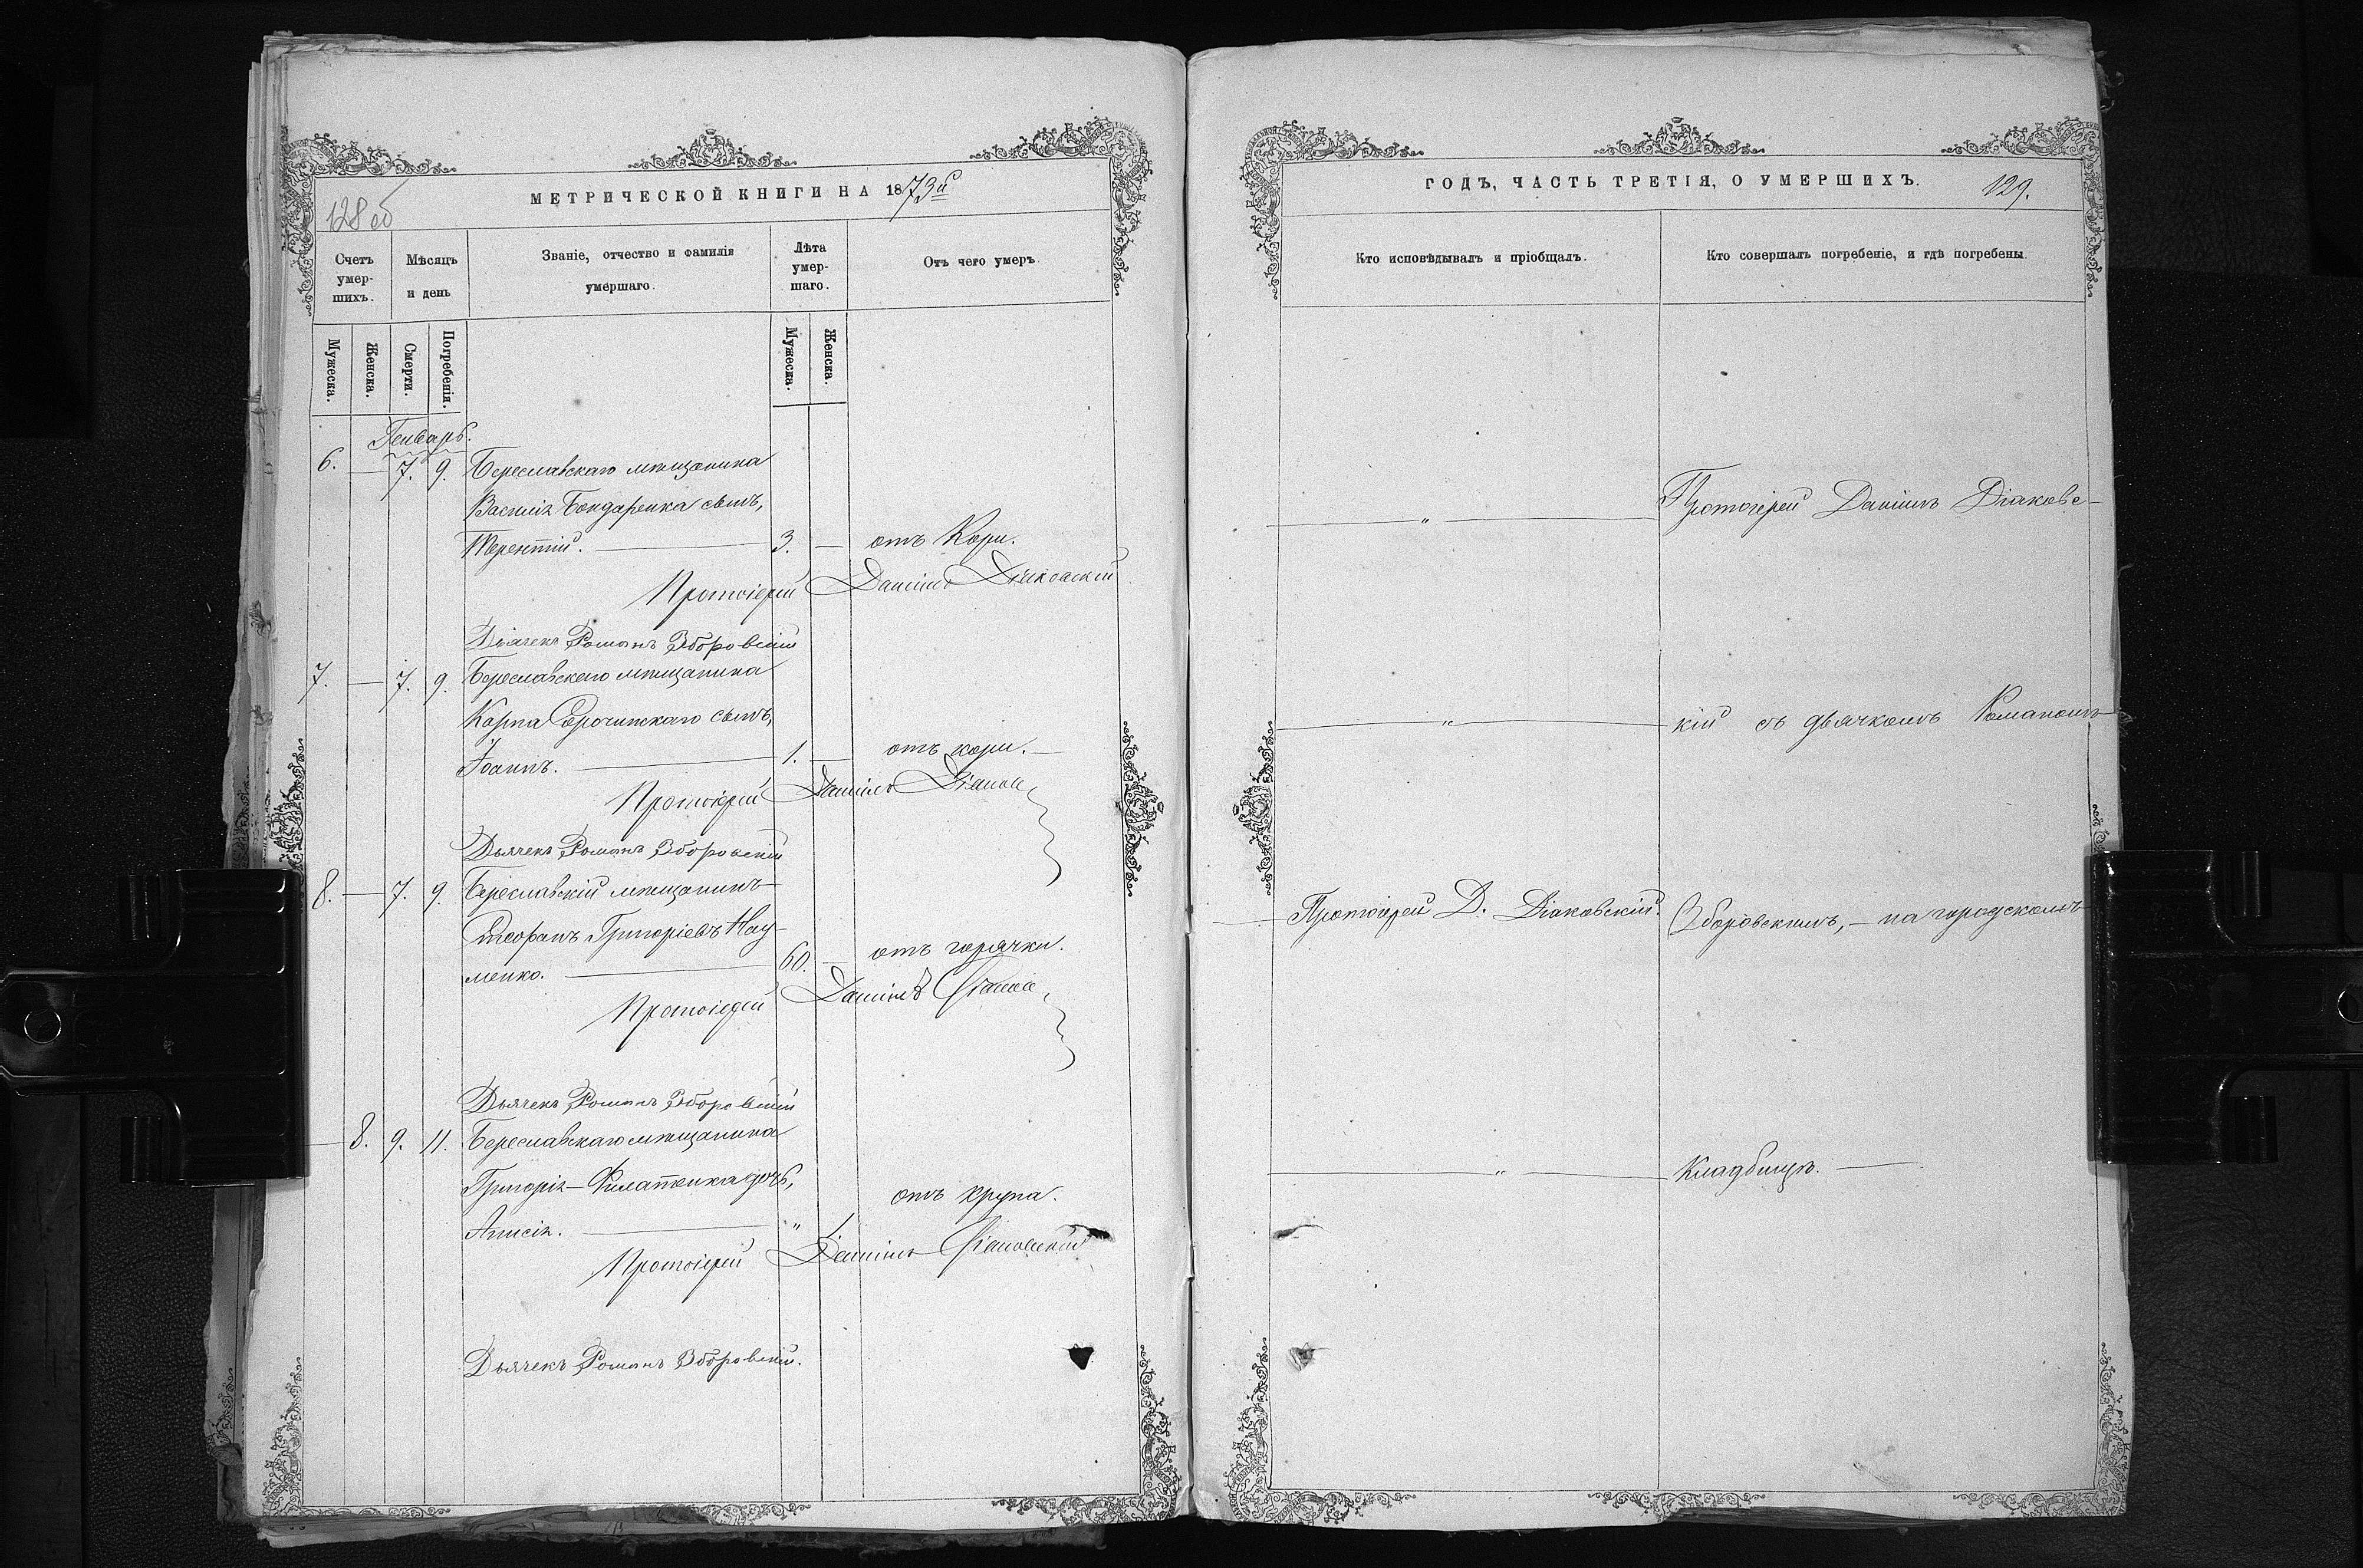 МЕТРИЧЕСКОЙ КНИГИ НА 1873й
128 об
Счетъ умер-шихъ.
Мѣсяцъ и день
Званіе, отчество и фамилія умершаго.
Лѣта умер-шаго.
Отъ чего умеръ.
Мужеска.
Женска.
Смерти.
Погребенія.
Мужеска.
Женска.
Генварь.
6. — 7. 9. Береславскаго мѣщанина
Василія Бондаренка сынъ,
Терентій. — 3. — отъ Кори.
Протоіерей Даніилъ Діаковскій
Дьячекъ Романъ Зборовскій
7. — 7. 9. Береславскаго мѣщанина
Карпа Сорочинскаго сынъ,
Іоаннъ. — 1. — отъ кори. —
Протоіерей Даніилъ
Дьячекъ Романъ Зборовскій
8. — 7. 9. Береславскій мѣщанинъ
Григоріевъ Нау-
менко. — 60. — отъ горячки.
Протоіерей Даніилъ
Дьячекъ Романъ Зборовскій
— 8. 9. 11. Береславскаго мѣщанина
Григорія Филатенка дочь,
Анисія. — " 1 отъ крупа.
Протоіерей Даніилъ Діаковскій
Дьячекъ Романъ Зборовскій.
ГОДЪ, ЧАСТЬ ТРЕТІЯ, О УМЕРШИХЪ.
129.
Кто исповѣдывалъ и пріобщалъ.
Кто совершалъ погребеніе, и гдѣ погребены.
— " — Протоіерей Даніилъ Діаковс-
— " — кій съ дьячкомъ Романомъ
— Протоіерей Д. Діаковскій. Зборовскимъ, — на городскомъ
— " — Кладбищѣ. —